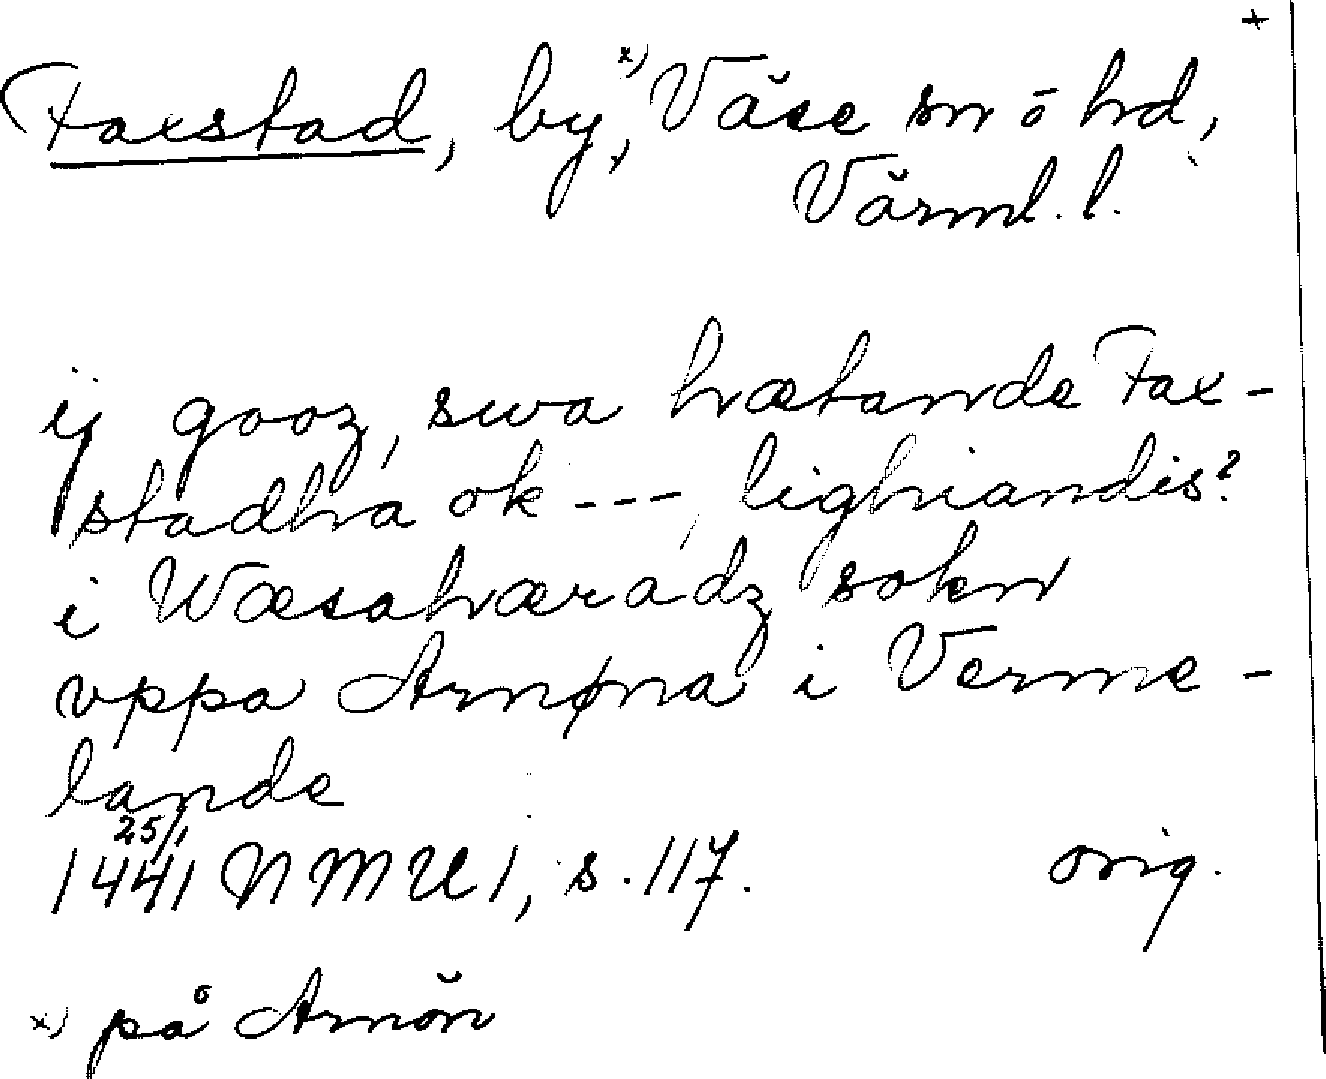 +
Faxstad, by, x) Väse sn o hd,
Värml. l.
ij gooz, swa hætande Fax-
stadha ok ---, lighiandis?
i Wæsahæradz sokn
vppa Arnøna i Verme-
lande
1441 25/1 NMU 1, s. 117. orig.
x) på Arnön